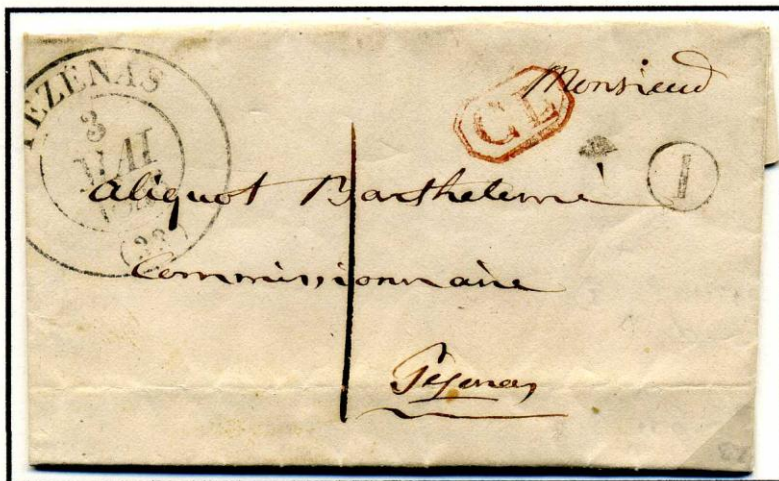 PEZENAS
3
MAI
(33)
CL
Monsieur
1
Aliquot Barthelemé
Commissionnaire
Pezenas